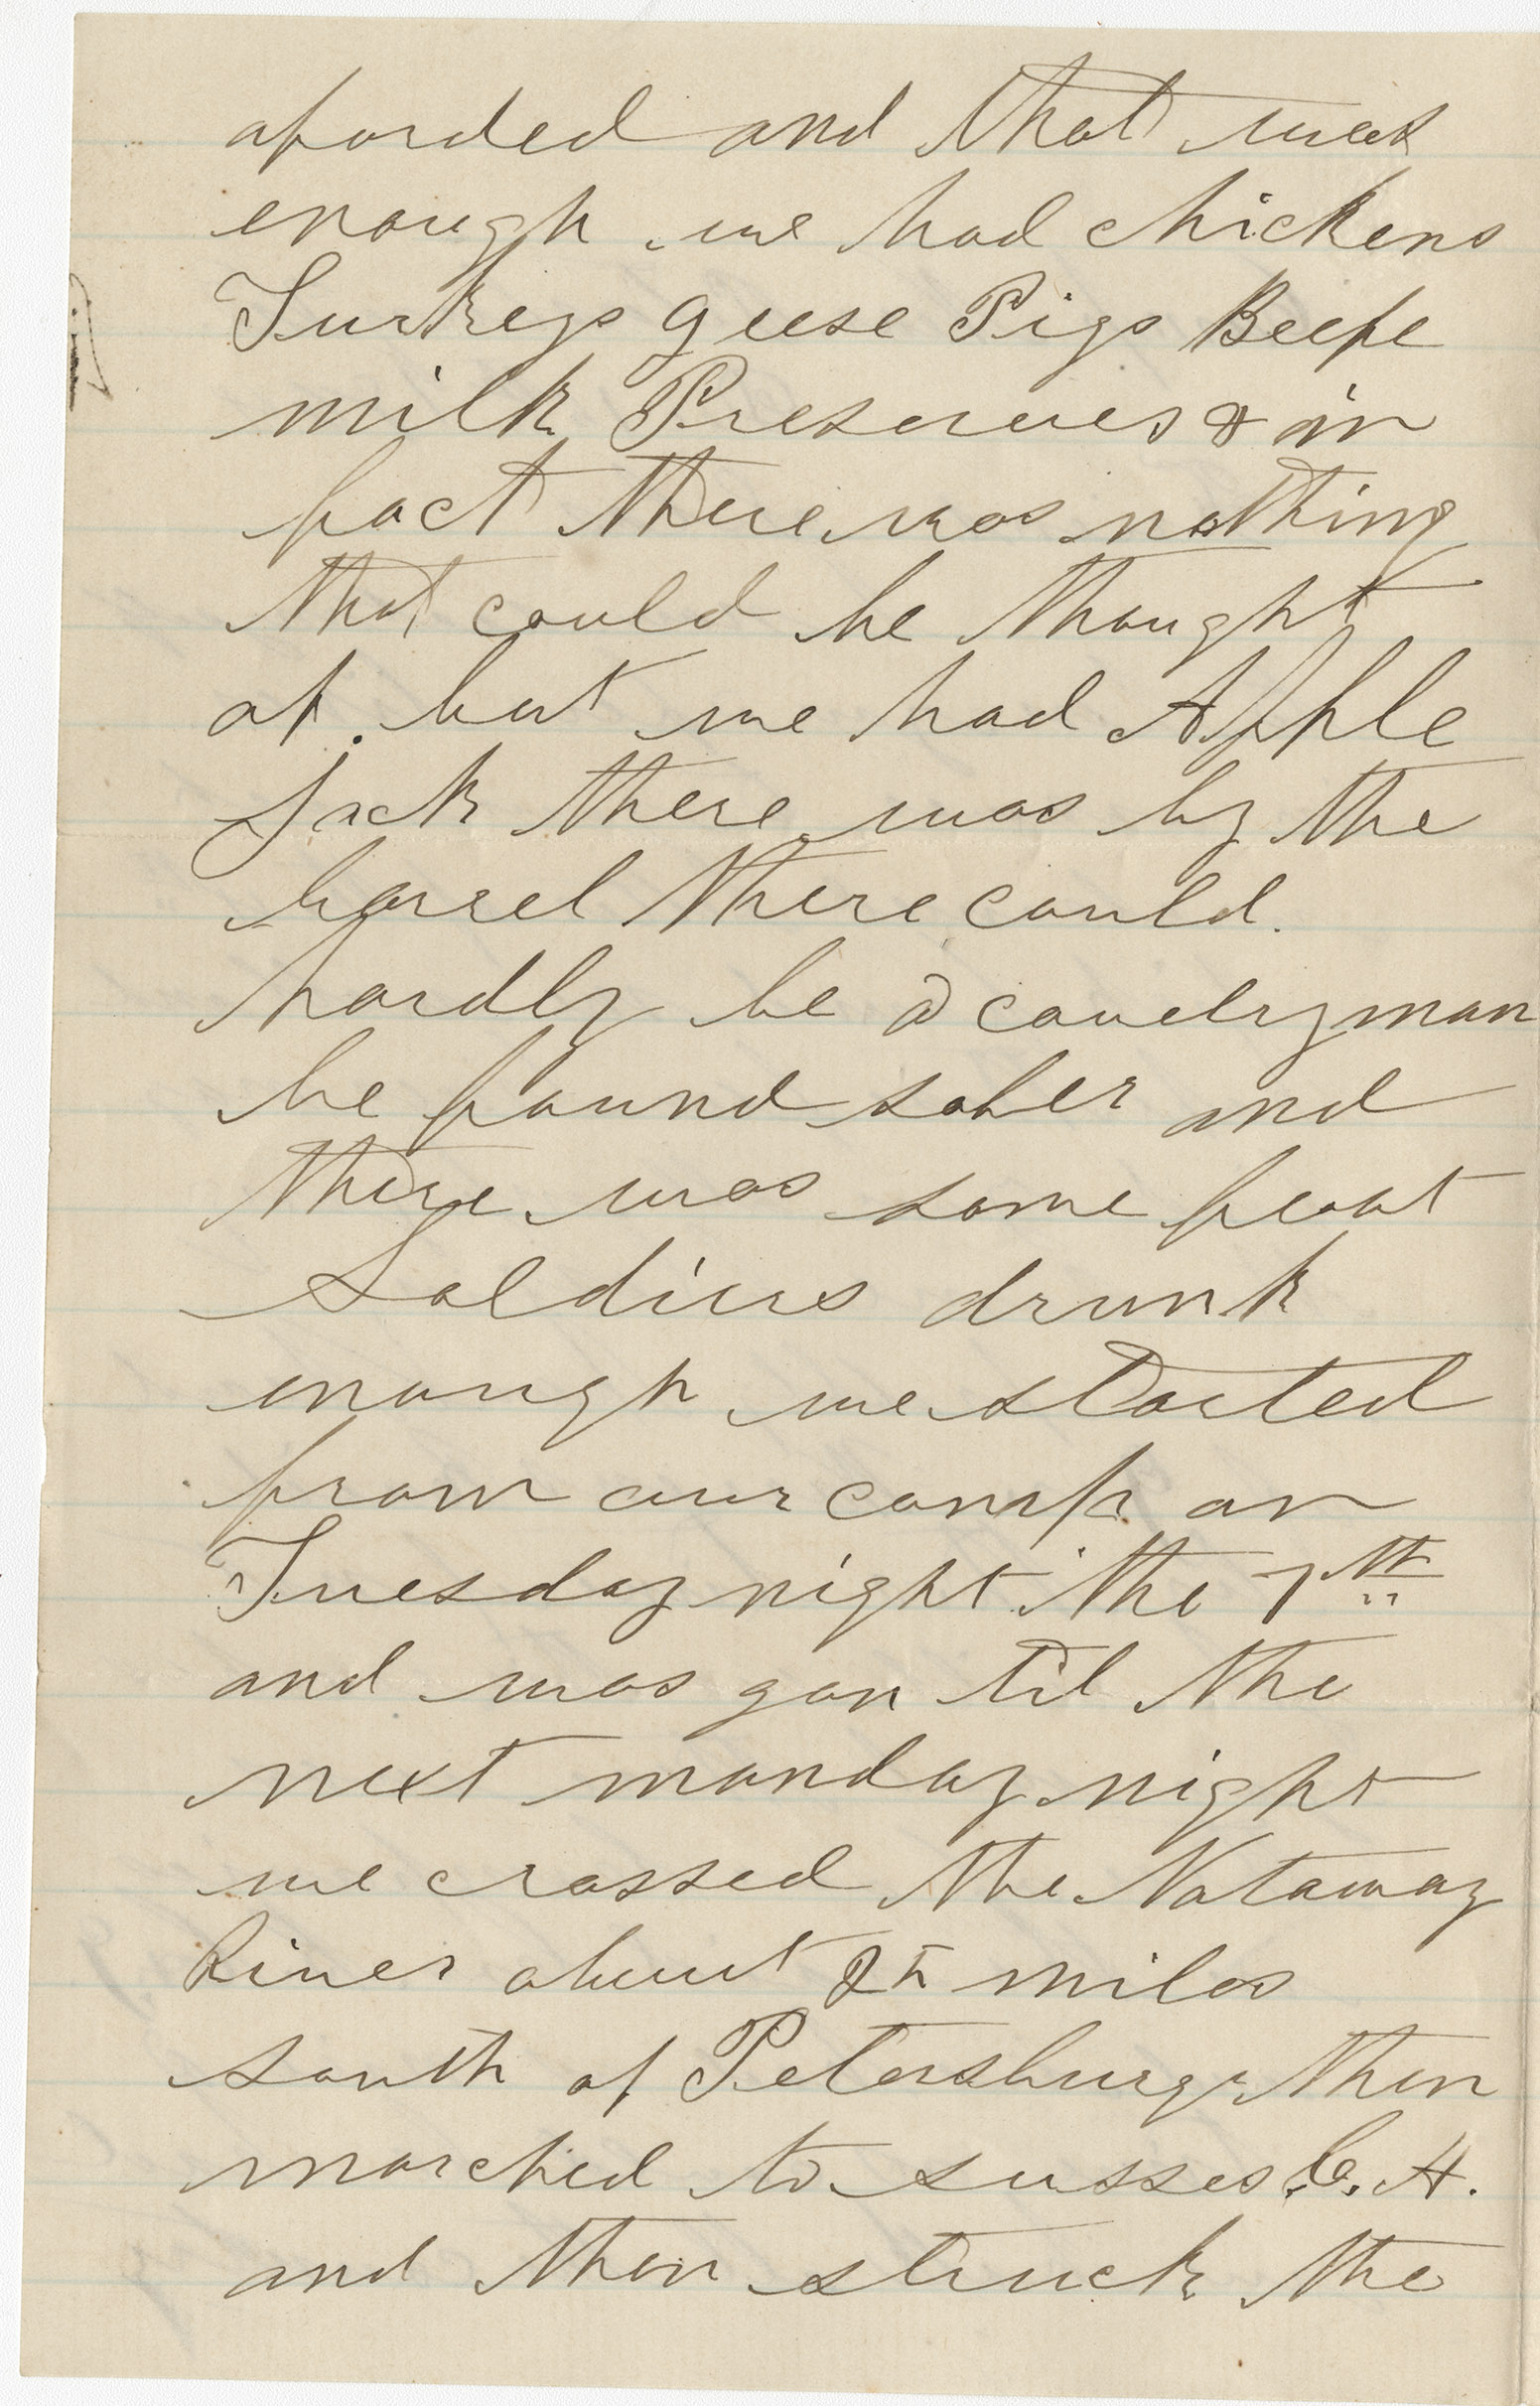 aforded and that was
enough we had chickens
Turkeys geese Pigs Beefe
milk Preserves & in
fact there was nothing
that could be thought
of. but we had Apple
Jack there was by the
barrel there could.
hardly be a cavelryman
be found sober and
there was some foot
Soldiers drunk
enough we started
from our camp on
Tuesday night the 7th
and was gon til the
next monday night
we crossed the Nataway
River about 25 miles
south of Petersburg then
marched to susses C. H.
and then struck the